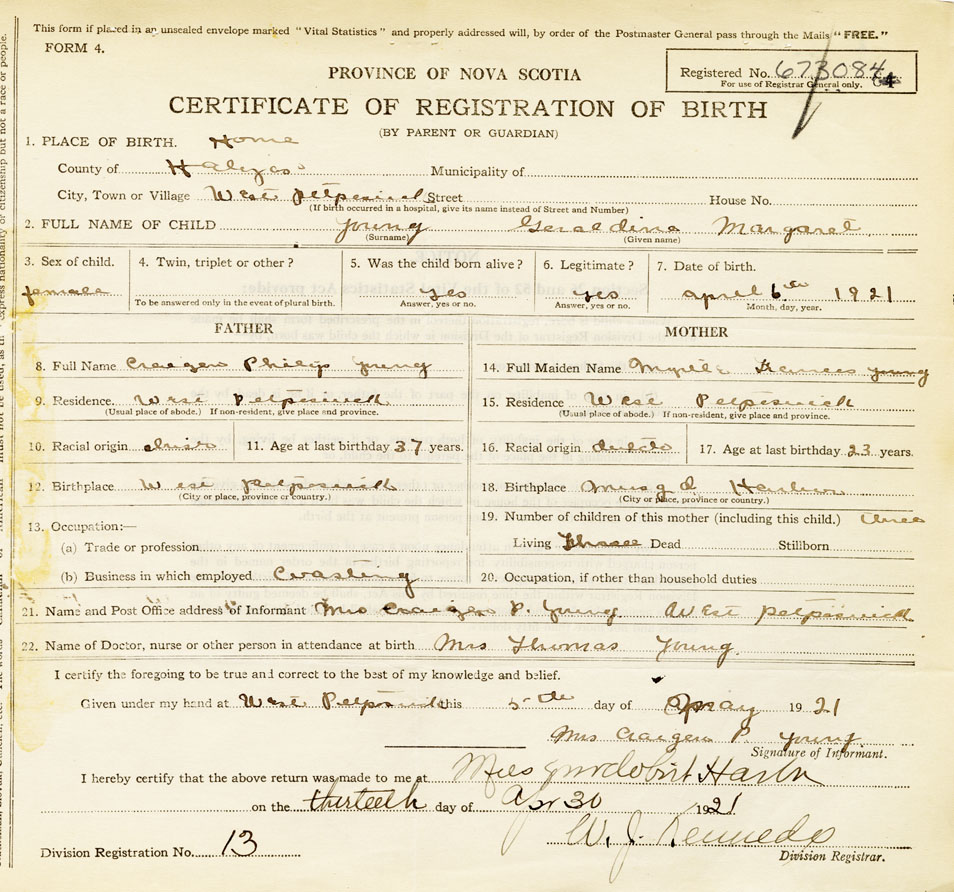 This form if placed in an unsealed envelope marked "Vital Statistics" and properly addressed will, by order of the Postmaster General pass through the Mails "FREE."
FORM 4.
PROVINCE OF NOVA SCOTIA
Registered No. 673084
For use of Registrar General only.
CERTIFICATE OF REGISTRATION OF BIRTH
(BY PARENT OR GUARDIAN)
1. PLACE OF BIRTH. Home
County of Municipality of
City, Town or Village West Street House No.
(If birth occurred in a hospital, give its name instead of Street and Number)
2. FULL NAME OF CHILD Young Geraldine Margaret
(Surname) (Given name)
3. Sex of child. 4. Twin, triplet or other? 5. Was the child born alive? 6. Legitimate? 7. Date of birth.
female yes yes april 6th 1921
To be answered only in the event of plural birth. Answer, yes or no. Answer, yes or no. Month, day, year.
FATHER MOTHER
8. Full Name Philip Young 14. Full Maiden Name Myrtle Frances Young
9. Residence West 15. Residence West
(Usual place of abode.) If non-resident, give place and province. (Usual place of abode.) If non-resident, give place and province.
10. Racial origin 11. Age at last birthday 37 years. 16. Racial origin 17. Age at last birthday 23 years.
12. Birthplace West 18. Birthplace
(City or place, province or country.) (City or place, province or country.)
13. Occupation:— 19. Number of children of this mother (including this child.) three
(a) Trade or profession Living Three Dead Stillborn
(b) Business in which employed Coasting 20. Occupation, if other than household duties
21. Name and Post Office address of Informant Mrs P. Young West
22. Name of Doctor, nurse or other person in attendance at birth Mrs Thomas Young
I certify the foregoing to be true and correct to the best of my knowledge and belief.
Given under my hand at West this 5th day of 1921
Mrs P. Young
Signature of Informant.
I hereby certify that the above return was made to me at
on the thirteeth day of Apr 30 1921
W. J. Kennedy
Division Registration No. 13 Division Registrar.